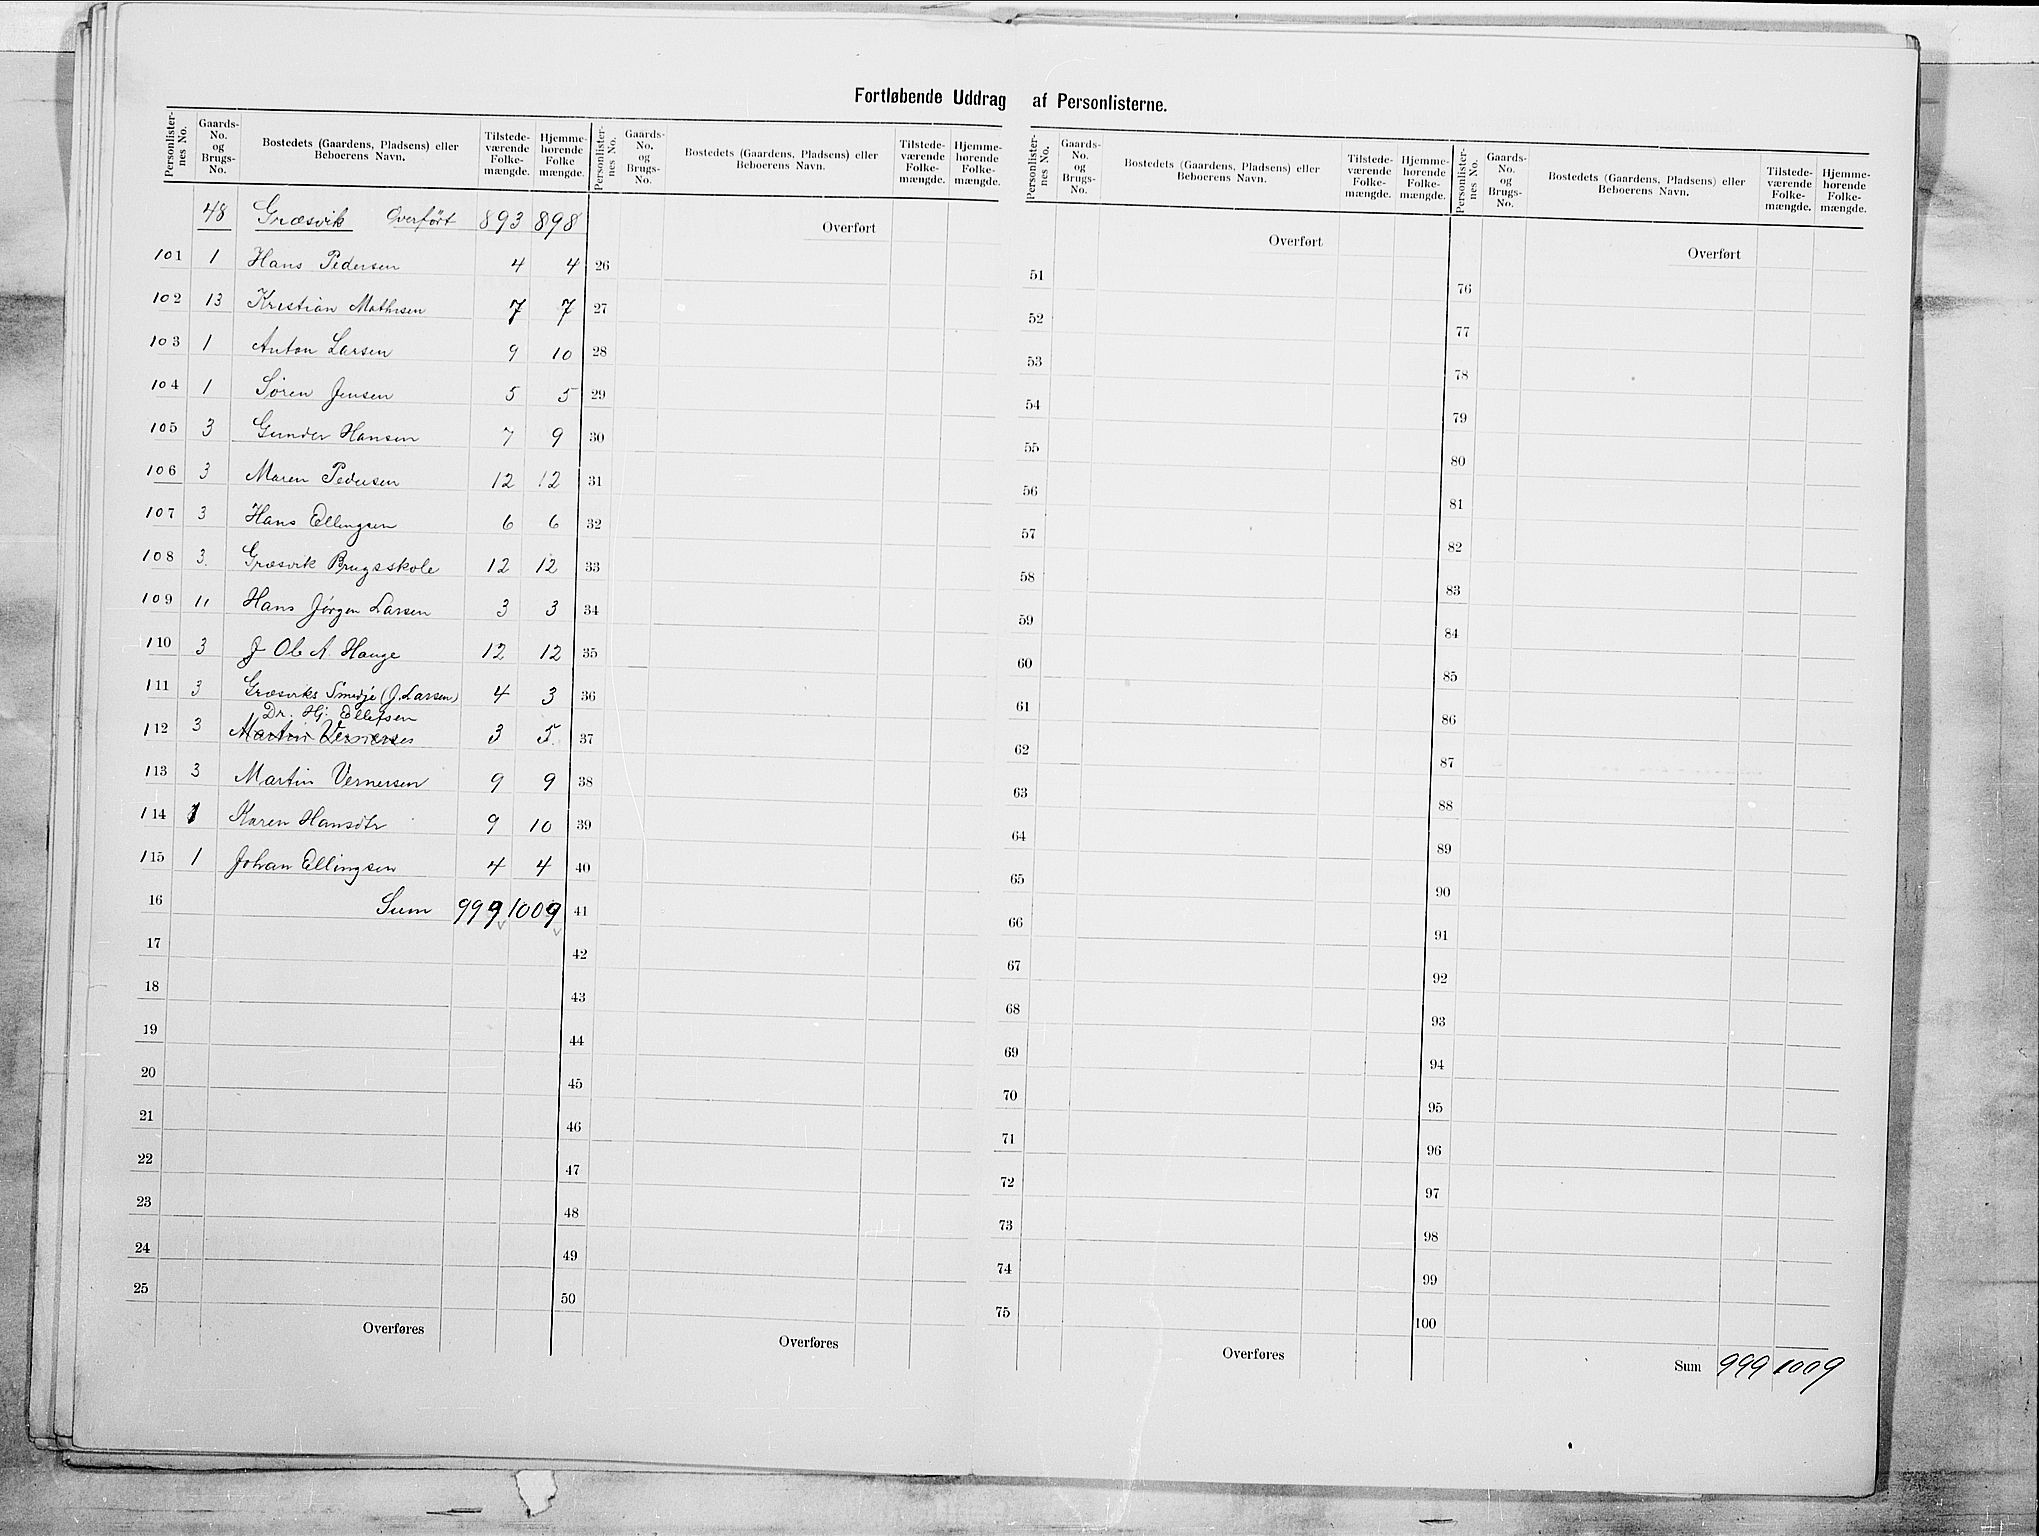 Fortløbende Uddrag af Personlisterne.
Personlister-nes No. Gaards-No. og Brugs-No. Bostedets (Gaardens, Pladsens) eller Beboerens Navn. Tilstede-værende Folke-mængde. Hjemme-hørende Folke mængde.
Personlister-nes No. Gaards-No. og Brugs-No. Bostedets (Gaardens, Pladsens) eller Beboerens Navn. Tilstede-værende Folke-mængde. Hjemme-hørende Folke-mængde.
Personlister-nes No. Gaards-No. og Brugs-No. Bostedets (Gaardens, Pladsens) eller Beboerens Navn. Tilstede-værende Folke-mængde. Hjemme-hørende Folke-mængde.
Personlister-nes No. Gaards-No. og Brugs-No. Bostedets (Gaardens, Pladsens) eller Beboerens Navn. Tilstede-værende Folke-mængde. Hjemme-hørende Folke-mængde.
48 Græsvik Overført 893 898
101 1 Hans Pedersen 4 4
102 13 Kristian Mathisen 7 7
103 1 Anton Larsen 9 10
104 1 Søren Jensen 5 5
105 3 Gunder Hansen 7 9
106 3 Maren Pedersen 12 12
107 3 Hans Ellingsen 6 6
108 3. Græsvik Brugsskole 12 12
109 11 Hans Jørgen Larsen 3 3
110 3 J Ol. A. Hauge 12 12
111 3 Græsviks Smedje (J. Larsen) 4 3
Dr. Hj. Ellefsen
112 3 Martin Vernersen 3 5
113 3 Martin Vernersen 9 9
114 1 Karen Hansdtr 9 10
115 1 Johan Ellingsen 4 4
16 Sum 999 1009
17
18
19
20
21
22
23
24
25
Overføres
Overført
26
27
28
29
30
31
32
33
34
35
36
37
38
39
40
41
42
43
44
45
46
47
48
49
50
Overføres
Overført
51
52
53
54
55
56
57
58
59
60
61
62
63
64
65
66
67
68
69
70
71
72
73
74
75
Overføres
Overført
76
77
78
79
80
81
82
83
84
85
86
87
88
89
90
91
92
93
94
95
96
97
98
99
100
Sum 999 1009